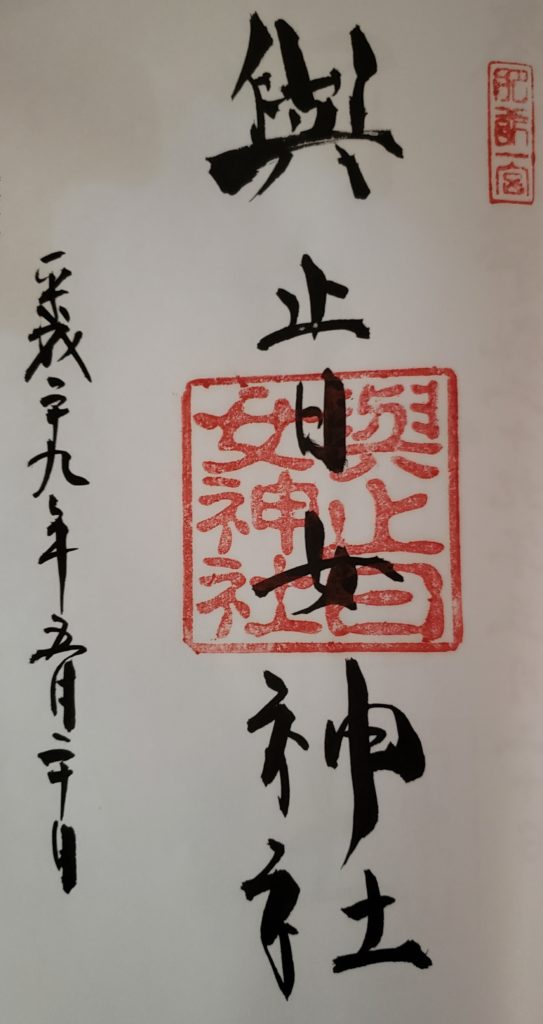 肥前一宮
與止日女神社
與止日
女神社
平成二十九年五月二十日